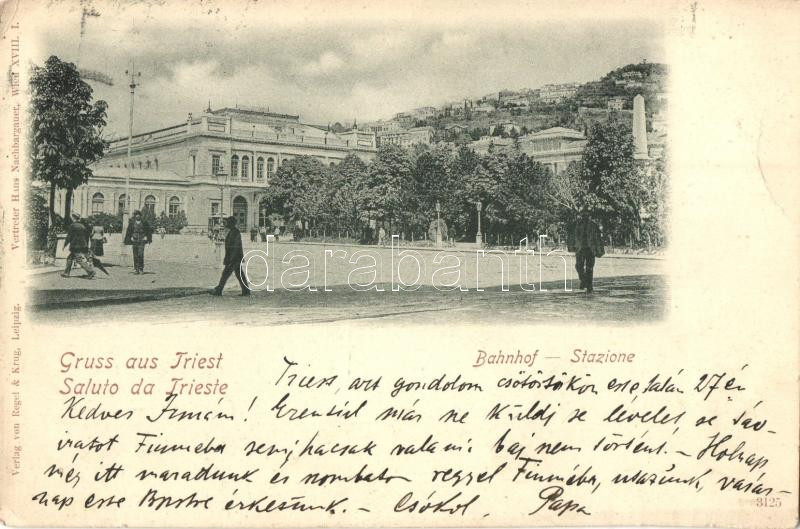 Verlag von Regel & Krug, Leipzig. Vertreter Hans Nachbargauer, Wien XVIII. 1.
darabanth
Gruss aus Triest
Saluto da Trieste
Bahnhof — Stazione
Triest, azt gondolom csötörtökön este talán 27én
Kedves Irmám! Ezentúl már ne küldj se levelet, se táv-
iratot Fiuméba, hacsak valami baj nem történt. – Holnap
még itt maradunk és szombaton reggel Fiuméba, utazunk, vasár-
nap este Bpestre érkezünk. – Csókol, Papa
3125